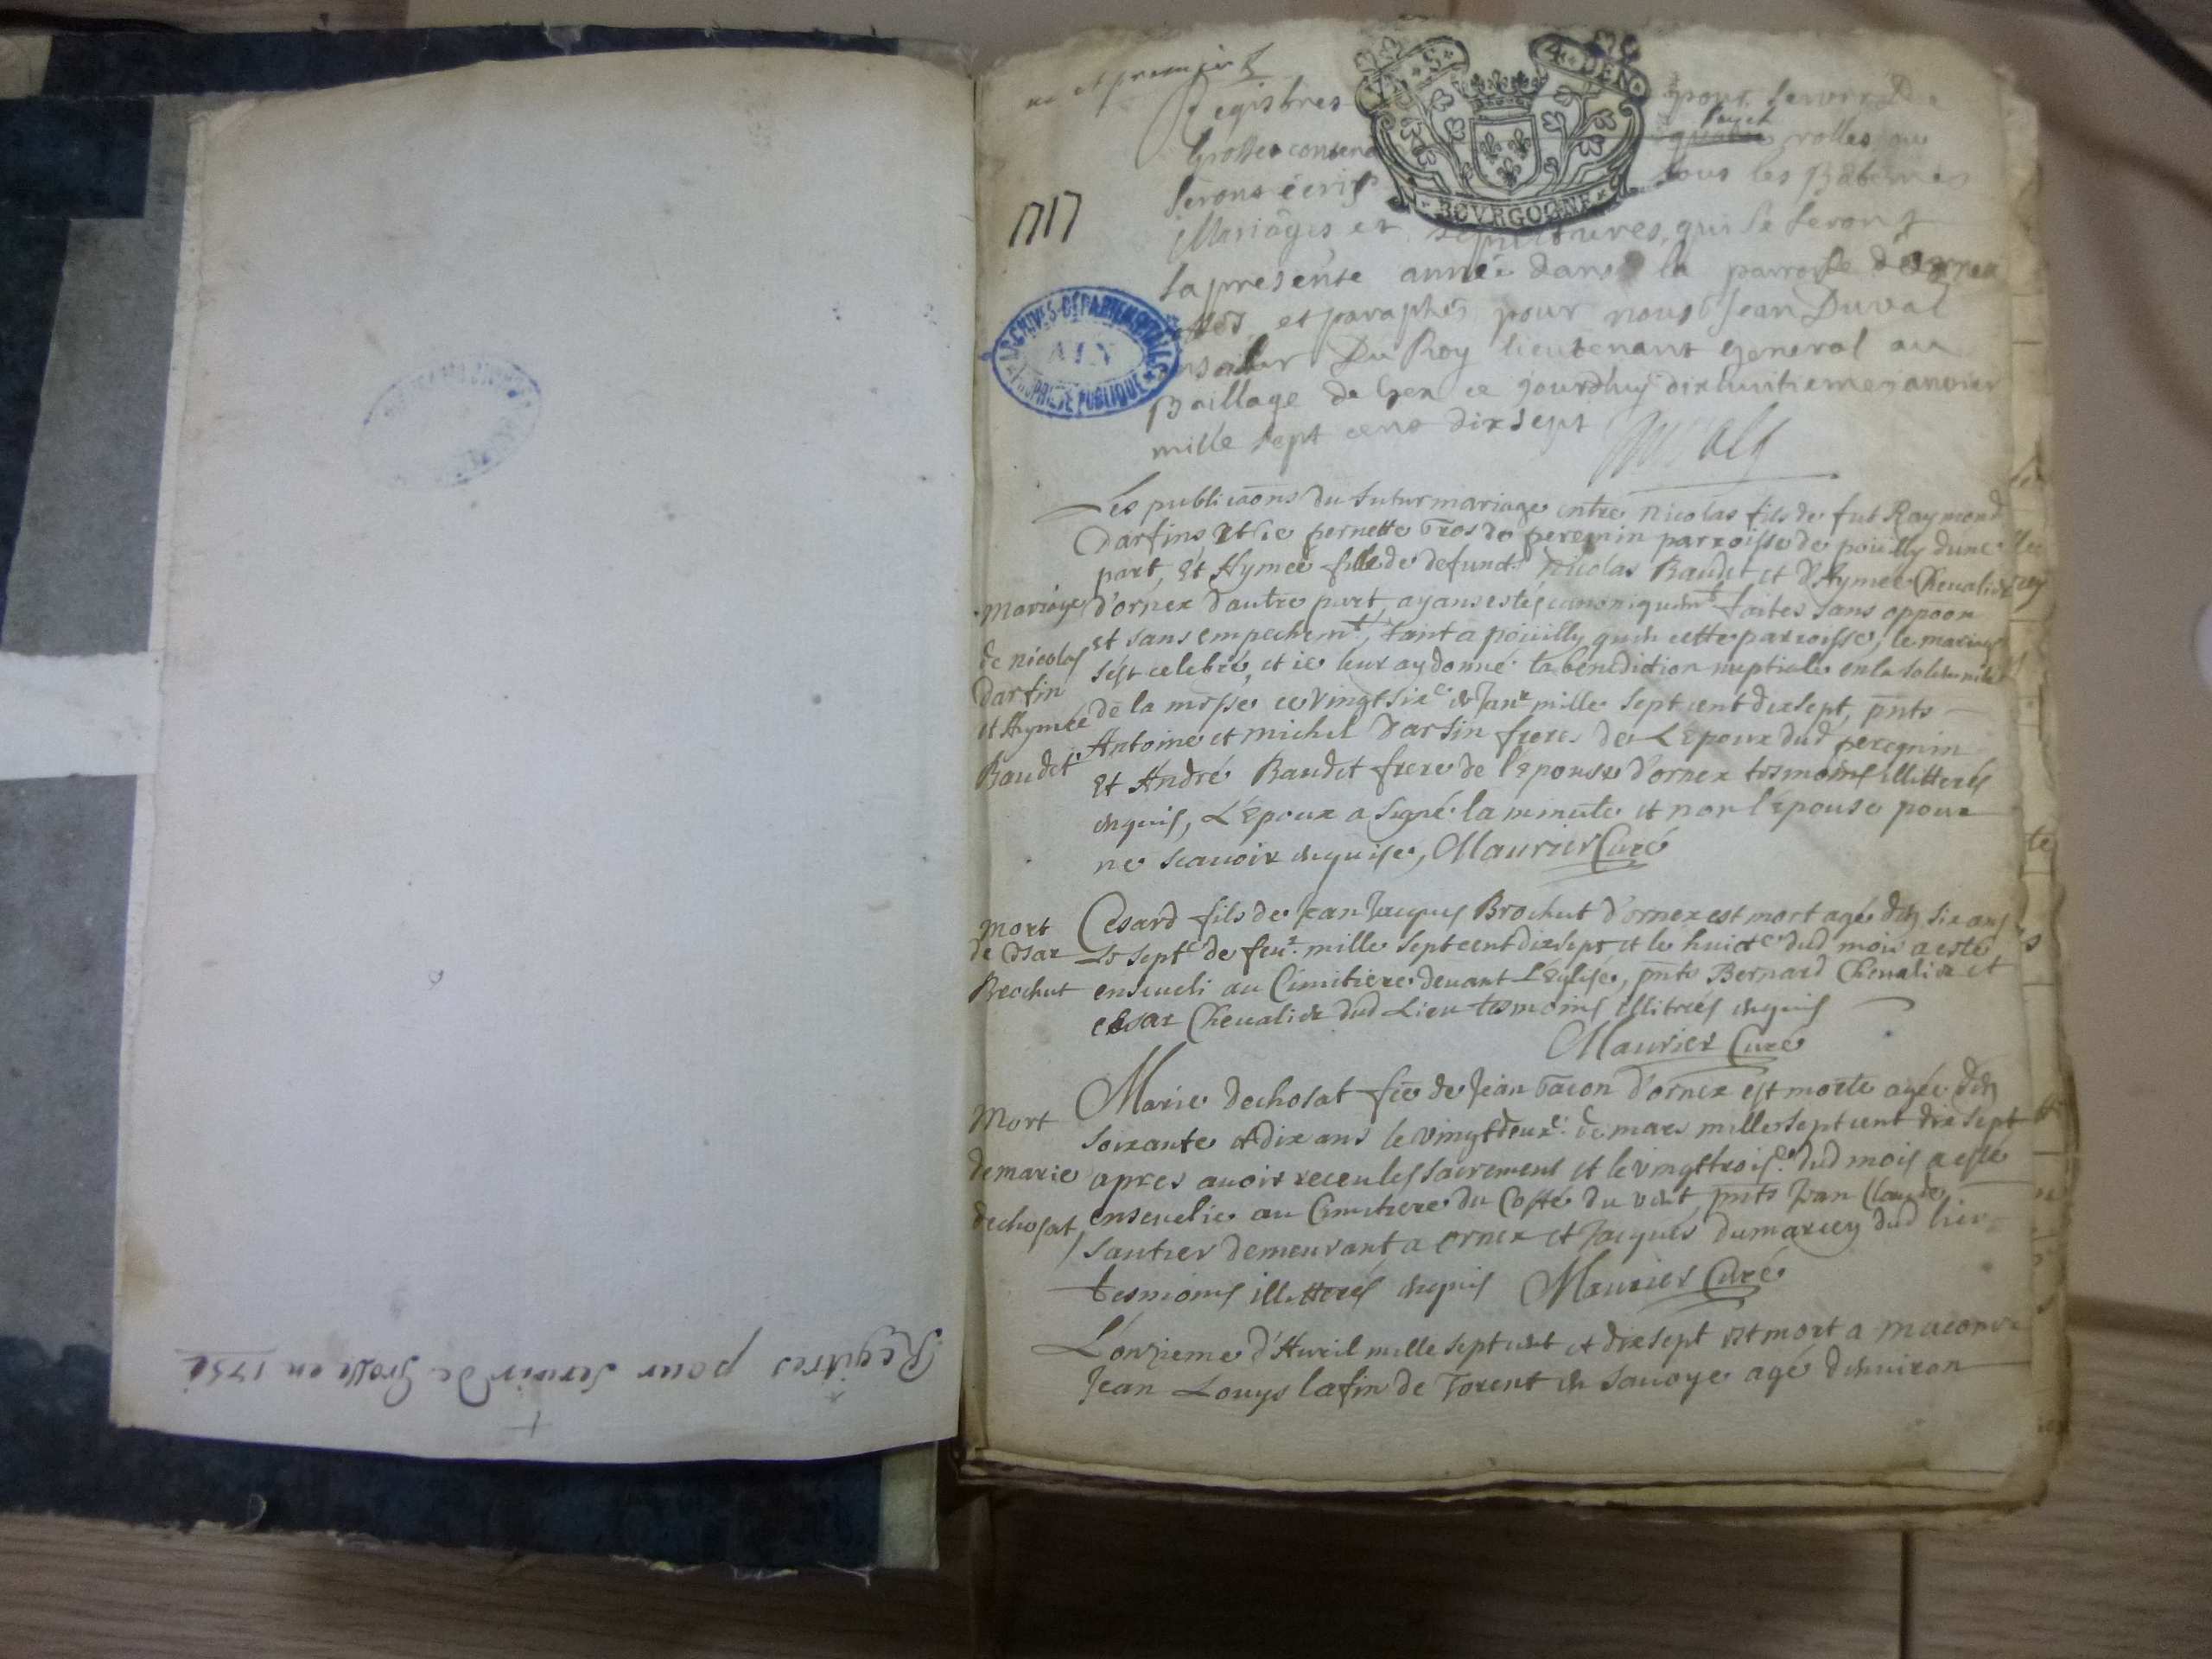 Registres pour servir de Grosse en 173
et premier
Registres pour servir de
Grosses contena sept rolles ou
seront écrits tous les Batêmes
Mariâges et sepultures, qui se feront
la presente année dans la parroisse d'Ornex
et paraphés pour nous Jean Duval
Du Roy lieutenant general au
Baillage de Gex ce jourdhuy dixhuitieme janvier
mille sept cens dix sept
1717
S
4 DEN
BOVRGOGNE
ARCHIVES DÉPARTEMENTALES
AIN
PROPRIÉTÉ PUBLIQUE
Les publicaons du futur mariage entre Nicolas fils de fut Raymond
Darfins et de pernette Gros de peregnin parroisse de pouilly dune
part, Et Aymeé fille de defunct Nicolas Baudet et d'Aymee Chevalier
d'ornex dautre part, ayans estés canoniquemt faites sans oppoon
et sans empechemt, tant a poüilly qu'en cette parroisse, le mariage
s'est celebré, et ie leur ay donné la benediction nuptiale en la solemnité
de la messe ce vingt six.e de Janr mille sept cent dix sept, pnts
Antoine et michel Darfin freres de L'Epoux dud peregnin
Et André Baudet frere de l'Epouse d'ornex tesmoins illitterés
enquis, L'Epoux a signé la minute et non l'Epouse pour
ne scavoir enquise, Maurier Curé
Mariage
de Nicolas
Darfin
et Aymeé
Baudet
Cesard fils de Jean Jacques Brochut d'ornex est mort agé den six ans
Le sept.e de feu.r mille sept cent dix sept et le huict.e dud mois a esté
enseueli au Cimitiere deuant L'Eglise, pnts Bernard Cheualier et
cesar Cheualier dud Lieu tesmoins illitrés enquis
Maurier Curé
Mort
de Cesar
Brochut
Marie dechosat fe de Jean Tacon d'ornex est morte agée den
soixante et dix ans le vingtdeux.e de mars mille sept cent dix sept
apres auoir receu les sacrements et le vingttrois.e dud mois a esté
enseuelie au Cimitiere du Costé du vent, pnts Jean Claude
Sautier demeurant a ornex et Jacques dumarcey dud lieu
tesmoins illitterés enquis Maurier Curé
Mort
de marie
dechosat
L'onzieme d'Auril mille sept cent et dix sept est mort a
Jean Louys lafin de Torent en Sauoye agé denuiron